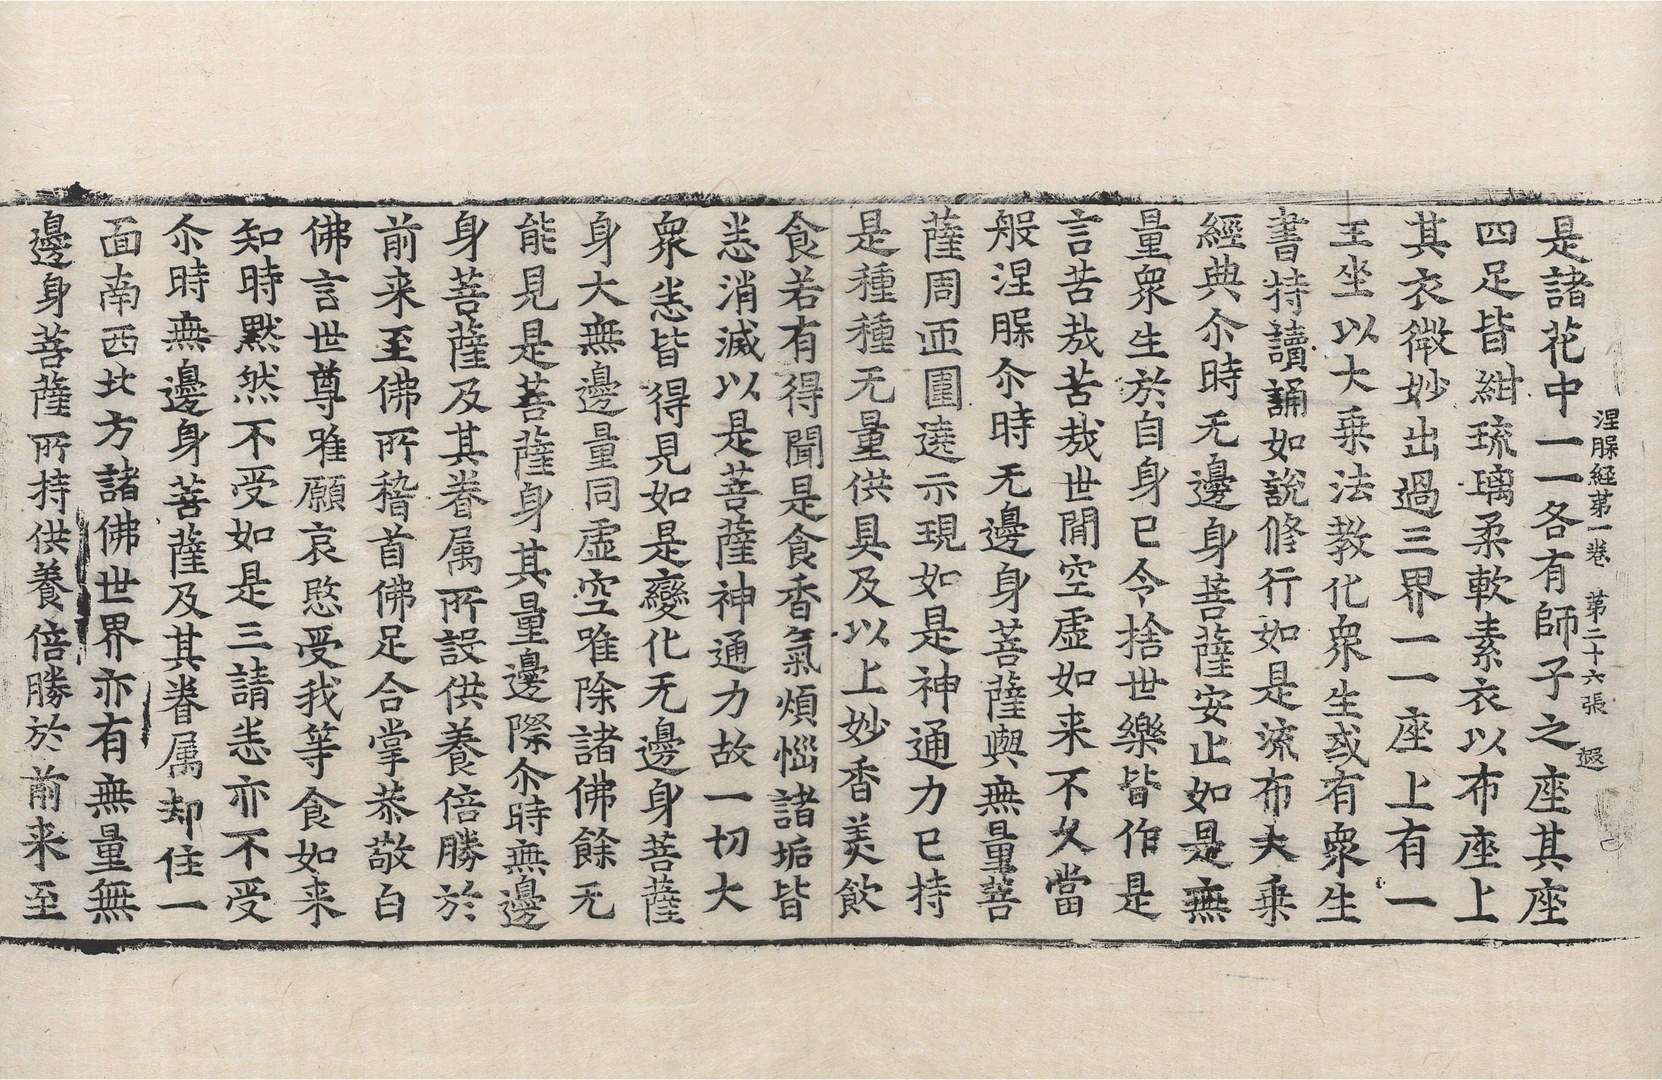 涅脲経苐一巻　苐二十六張　遐
是諸花中一一各有師子之座其座
四足皆紺琉璃柔軟素衣以布座上
其衣微妙出過三界一一座上有一
王坐以大乗法教化衆生或有衆生
書持讀誦如說修行如是流布大乗
經典尒時无邊身菩薩安止如是無
量衆生於自身已令捨世樂皆作是
言苦㢤苦㢤世閒空虛如来不久當
般涅脲尒時无邊身菩薩與無量菩
薩周迊圍遶示現如是神通力已持
是種種无量供具及以上妙香美飲
食若有得聞是食香氣煩惱諸垢皆
悉消滅以是菩薩神通力故一切大
衆悉皆得見如是變化无邊身菩薩
身大無邊量同虛空唯除諸佛餘无
能見是菩薩身其量邊際尒時無邊
身菩薩及其眷属所設供養倍勝於
前来至佛所稽首佛足合掌恭敬白
佛言世尊唯願哀愍受我等食如来
知時默然不受如是三請悉亦不受
尒時無邊身菩薩及其眷属却住一
面南西北方諸佛世界亦有無量無
邊身菩薩所持供養倍勝於前来至